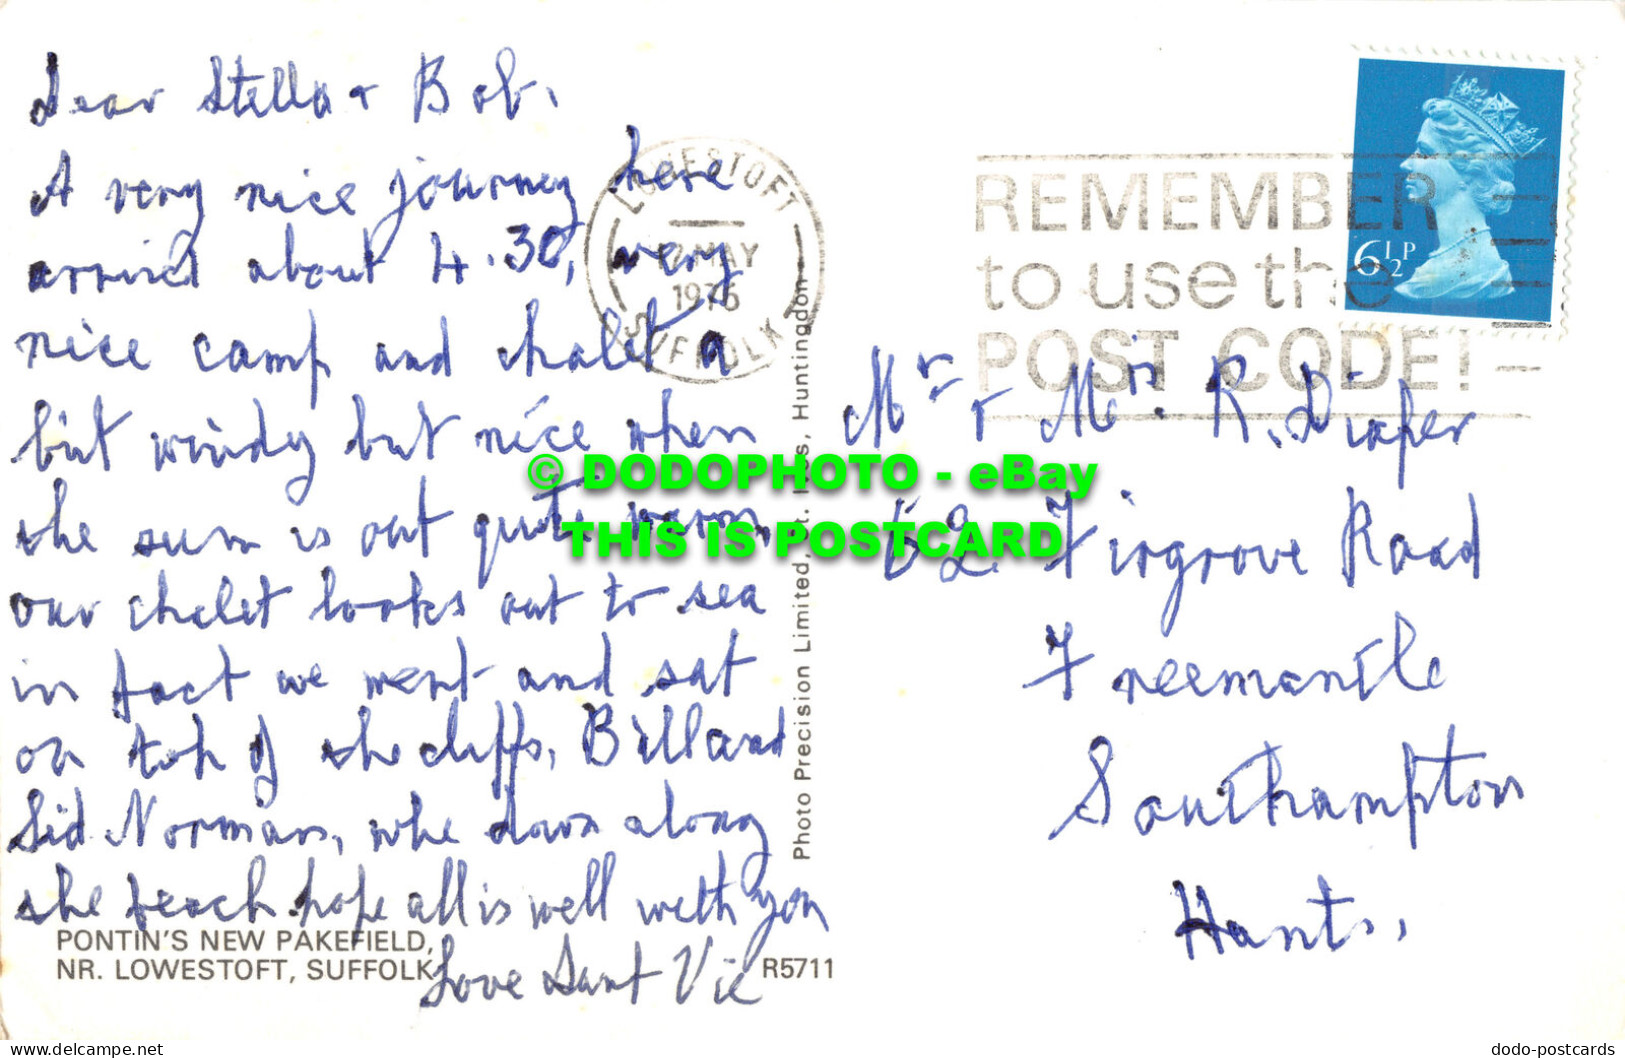 Dear Stella + Bob,
A very nice journey here
arrived about 4.30, very
nice camp and chalet a
bit windy but nice when
the sun is out quite warm,
our chalet looks out to sea
in fact we went and sat
on top of the cliffs, Bill and
Sid Norman, whe down along
the beach. hope all is well with you
Love Aunt Vic
PONTIN'S NEW PAKEFIELD,
NR. LOWESTOFT, SUFFOLK
R5711
Photo Precision Limited, St. Ives, Huntingdon
LOWESTOFT
12 MAY
1976
SUFFOLK
REMEMBER
to use the
POST CODE!
6½P
Mr + Mrs. R. Draper
62 Firgrove Road
Freemantle
Southampton
Hants.
© DODOPHOTO - eBay
THIS IS POSTCARD
website : www.delcampe.net
dodo-postcards